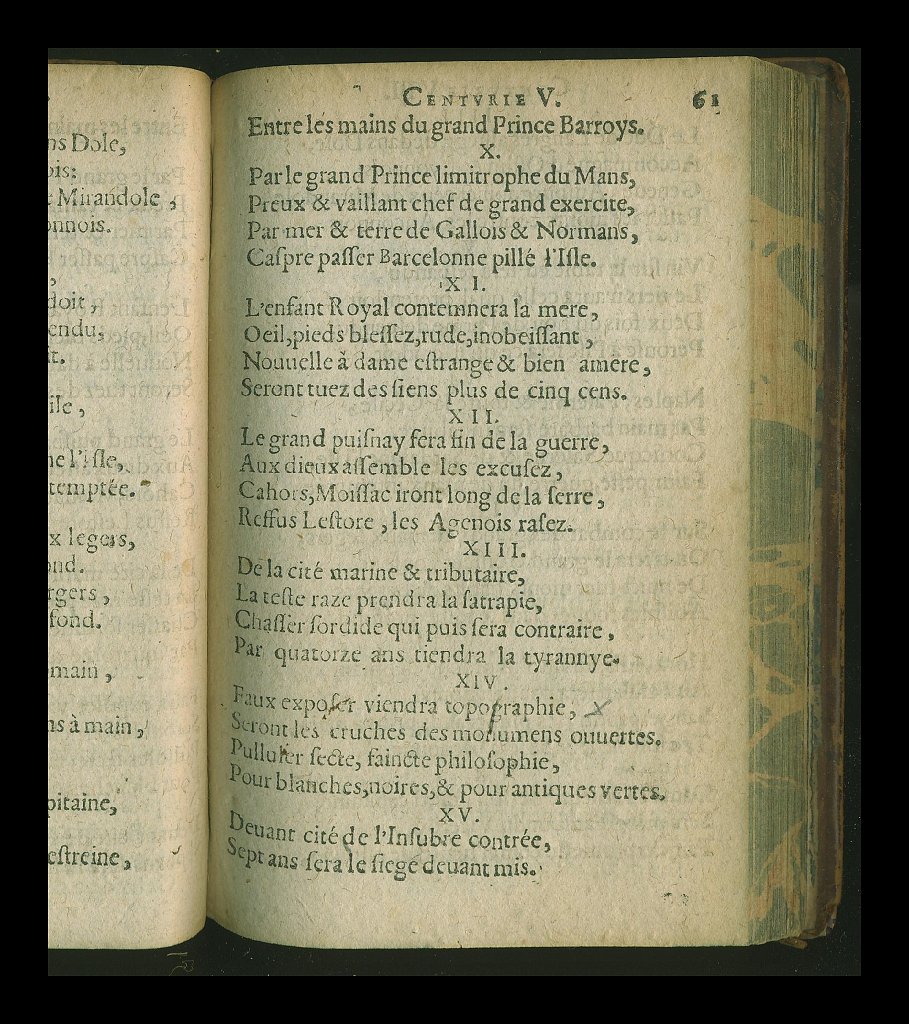 ns Dole,
ois:
Mirandole ,
onnois.
doit ,
endu,
ne l'Iſle,
temptée.
x legers,
ond.
rgers ,
fond.
main ,
ns à main ,
pitaine,
eſtreine ,
CENTVRIE V. 61
Entre les mains du grand Prince Barroys.
X.
Par le grand Prince limitrophe du Mans,
Preux & vaillant chef de grand exercite,
Par mer & terre de Gallois & Normans,
Caſpre paſſer Barcelonne pillé l'Iſle.
XI.
L'enfant Royal contemnera la mere,
Oeil, pieds bleſſez, rude, inobeiſſant ,
Nouuelle à dame eſtrange & bien amere,
Seront tuez des ſiens plus de cinq cens.
XII.
Le grand puiſnay fera fin de la guerre,
Aux dieux aſſemble les excuſez,
Cahors, Moiſſac iront long de la ſerre,
Reffus Leſtore , les Agenois raſez.
XIII.
De la cité marine & tributaire,
La teſte raze prendra la ſatrapie,
Chaſſer ſordide qui puis ſera contraire,
Par quatorze ans tiendra la tyrannye.
XIV.
Faux expoſer viendra topographie,
Seront les cruches des monumens ouuertes.
Pulluler ſecte, faincte philoſophie,
Pour blanches, noires, & pour antiques vertes.
XV.
Deuant cité de l'Inſubre contrée,
Sept ans ſera le ſiege deuant mis.